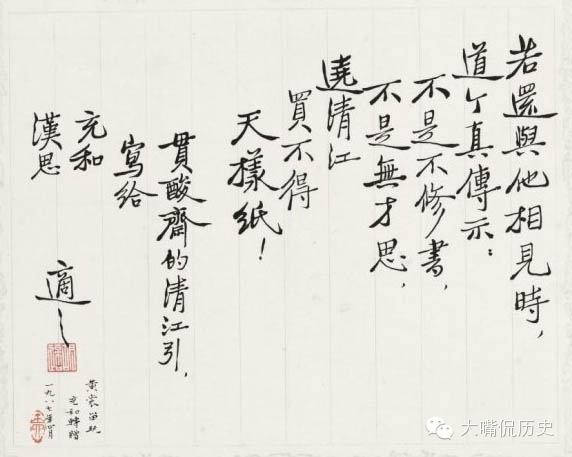 若還與他相見時，
道个真傳示：
不是不修書，
不是無才思，
遶清江
買不得
天樣紙！
貫酸齋的清江引，
寫給
充和
漢思
適之
黃裳留玩
充和轉贈
一九八七年四月
大嘴侃历史